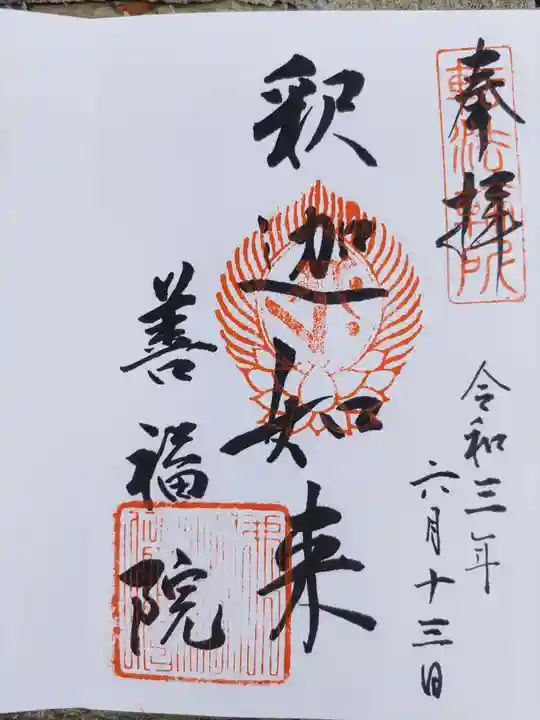 奉拝
令和三年
六月十三日
釈迦如来
善福院